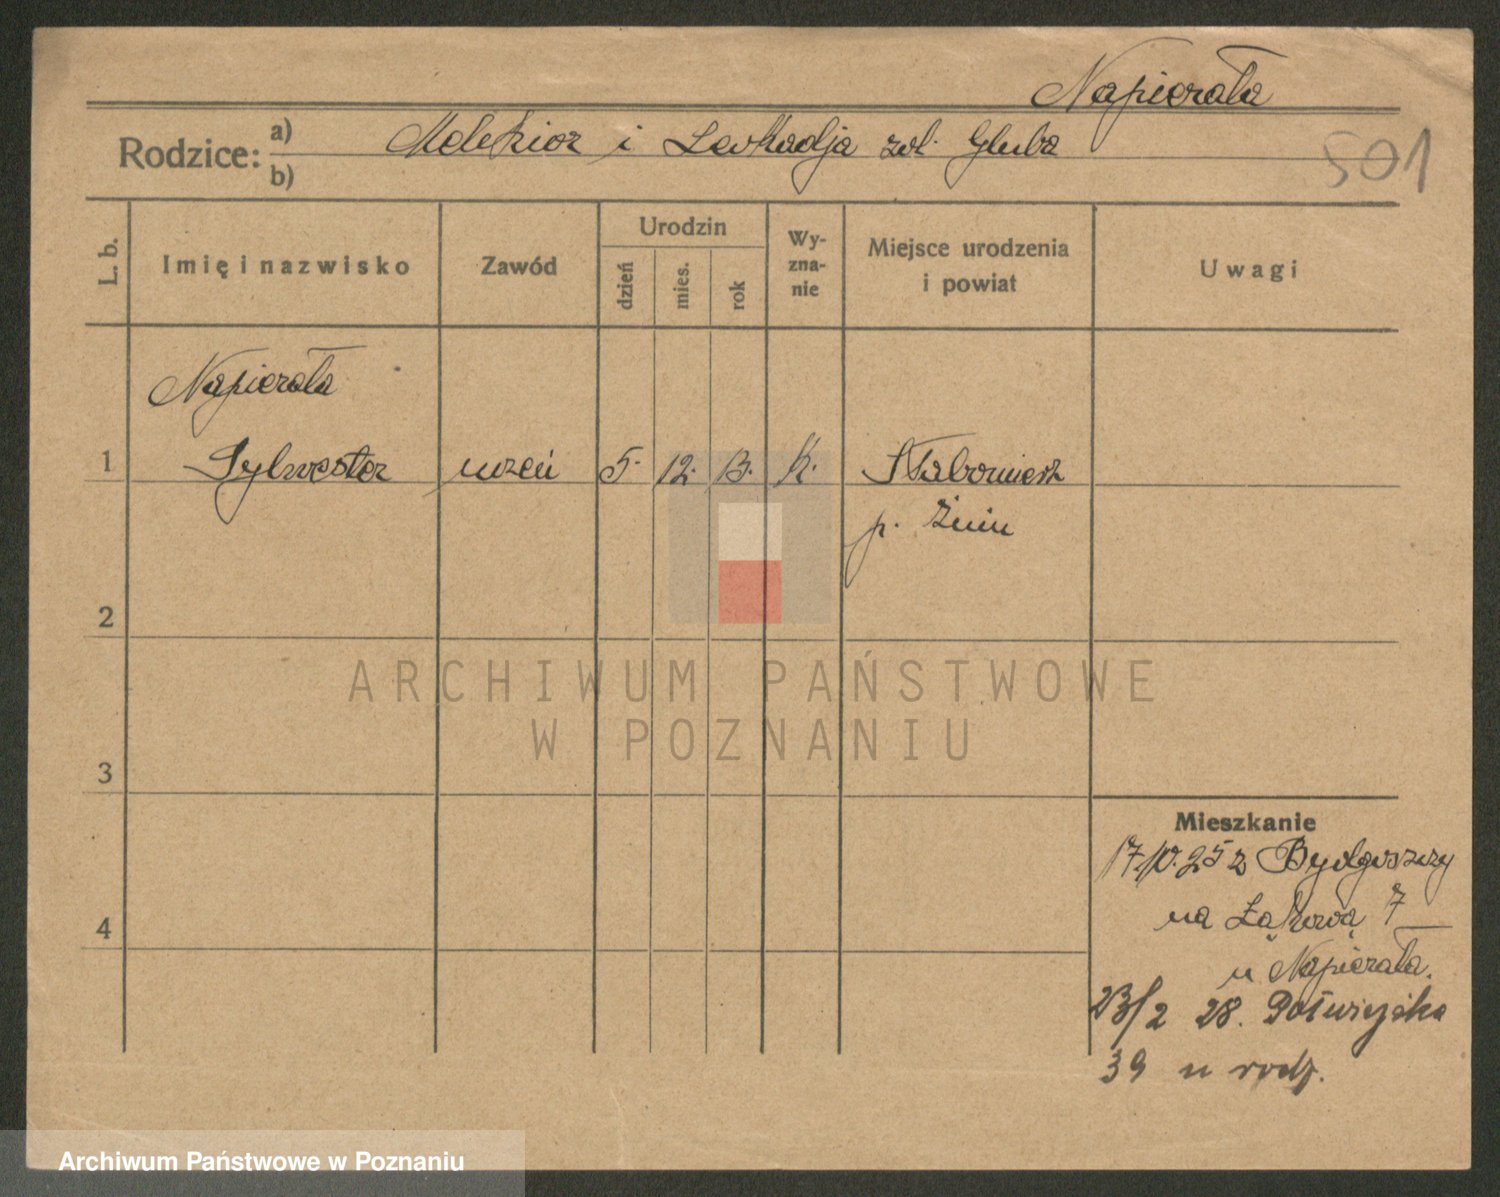 Napierała
Rodzice: a) Melchior i Leokadja zd. Gluba
b)
501
L. b.
Imię i nazwisko
Zawód
Urodzin
dzień
mies.
rok
Wy-
zna-
nie
Miejsce urodzenia
i powiat
Uwagi
Napierała
1 Sylwester uczeń 5. 12. 13. k.
p. Żnin
2
ARCHIWUM PAŃSTWOWE
W POZNANIU
3
Mieszkanie
17.10.25 z Bydgoszczy
na Łąkową 7
u Napierała.
4
23/2 28. Półwiejska
39 u rodz.
Archiwum Państwowe w Poznaniu